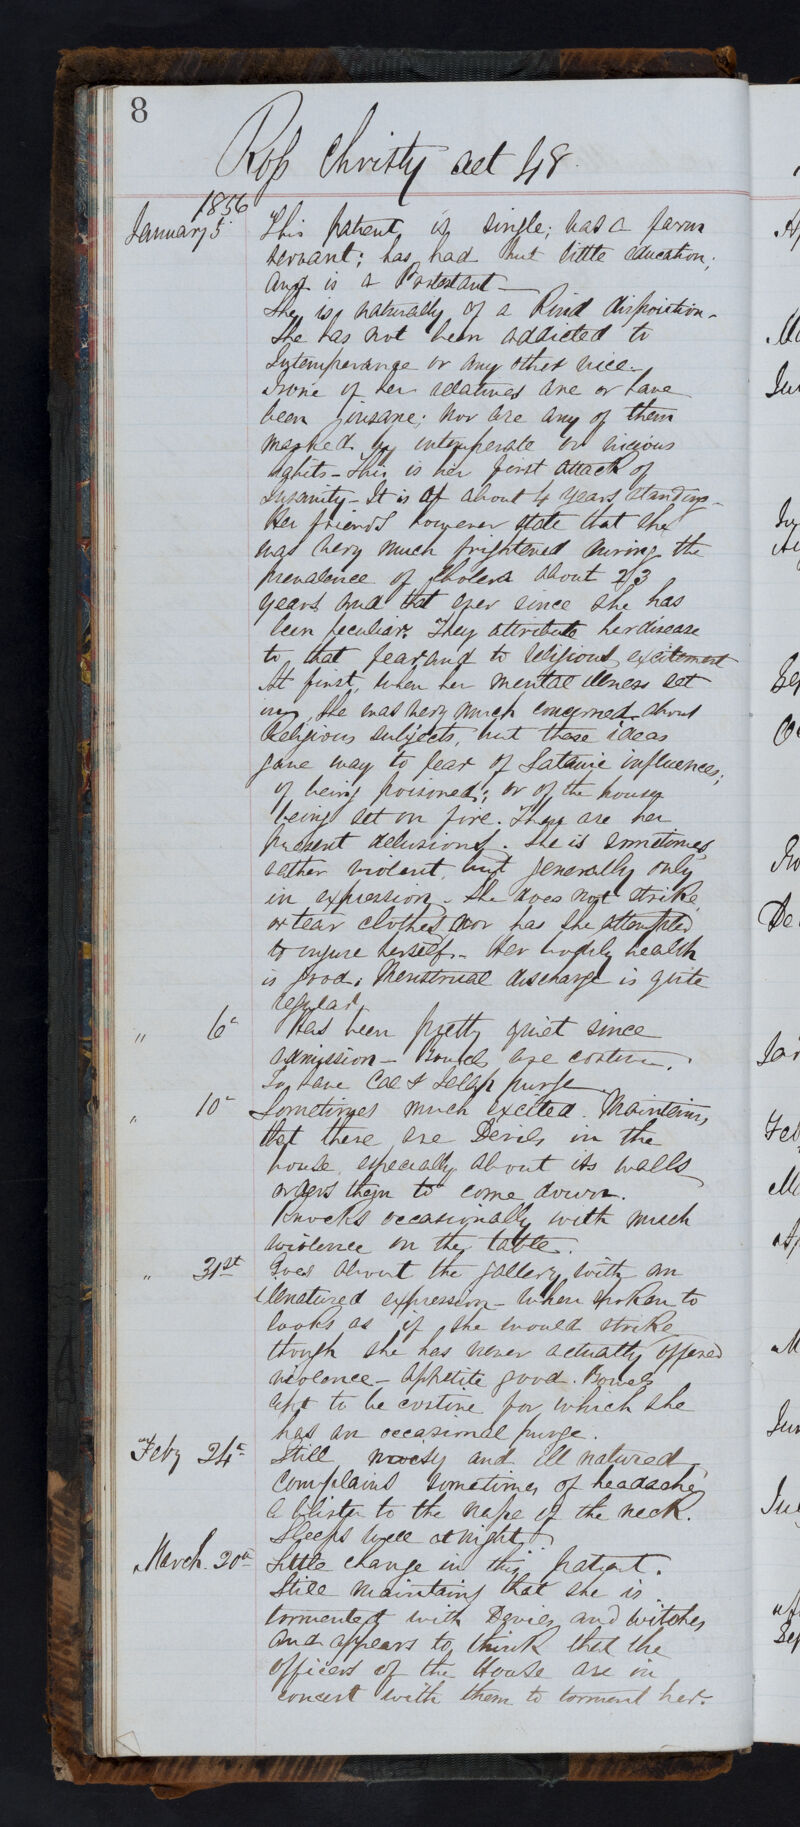 8
Ross Christy aet 48.
1856
January 5 This patient is single; was a farm
servant; has had but little education;
and is a Protestant —
She is naturally of a Kind disposition -
She has not been addicted to
Intemperance or any other vice -
None of her relatives are or have
been insane; nor are any of them
marked by intemperate or vicious
habits - This is her first attack of
Insanity - It is of about 4 years standing -
Her friends however state that she
was very much frightened during the
prevalence of Cholera about 23
years and that ever since she has
been peculiar. They attribute her disease
to that fear and to religious excitement
At first, when her mental illness set
in, She was very much concerned about
Religious subjects, but these ideas
gave way to fear of Satanic influences;
of being poisoned; or of the house
being set on fire. These are her
present delusions. She is sometimes
rather violent, but generally only
in expression. She does not strike
or tear clothes, nor has she attempted
to injure herself. Her bodily health
is good; Menstrual discharge is quite
regular.
" 6 Has been pretty quiet since
admission - Bowels are costive.
To have Cal & Jalap purge
" 10 Sometimes much excited. Maintains
that there are Devils in the
house, especially about its walls
orders them to come down.
Knocks occasionally with much
violence on the table.
" 31st Goes about the gallery with an
illnatured expression - When spoken to
looks as if she would strike
though she has never actually offered
violence - Appetite good. Bowels
apt to be costive for which she
has an occasional purge.
Feby 24 Still noisy and ill natured,
complains sometimes of headache,
A blister to the nape of the neck.
Sleeps well at night.
March 20 Little change in this patient.
Still maintains that she is
tormented with Devils and witches
and appears to think that the
officers of the House are in
concert with them to torment her.